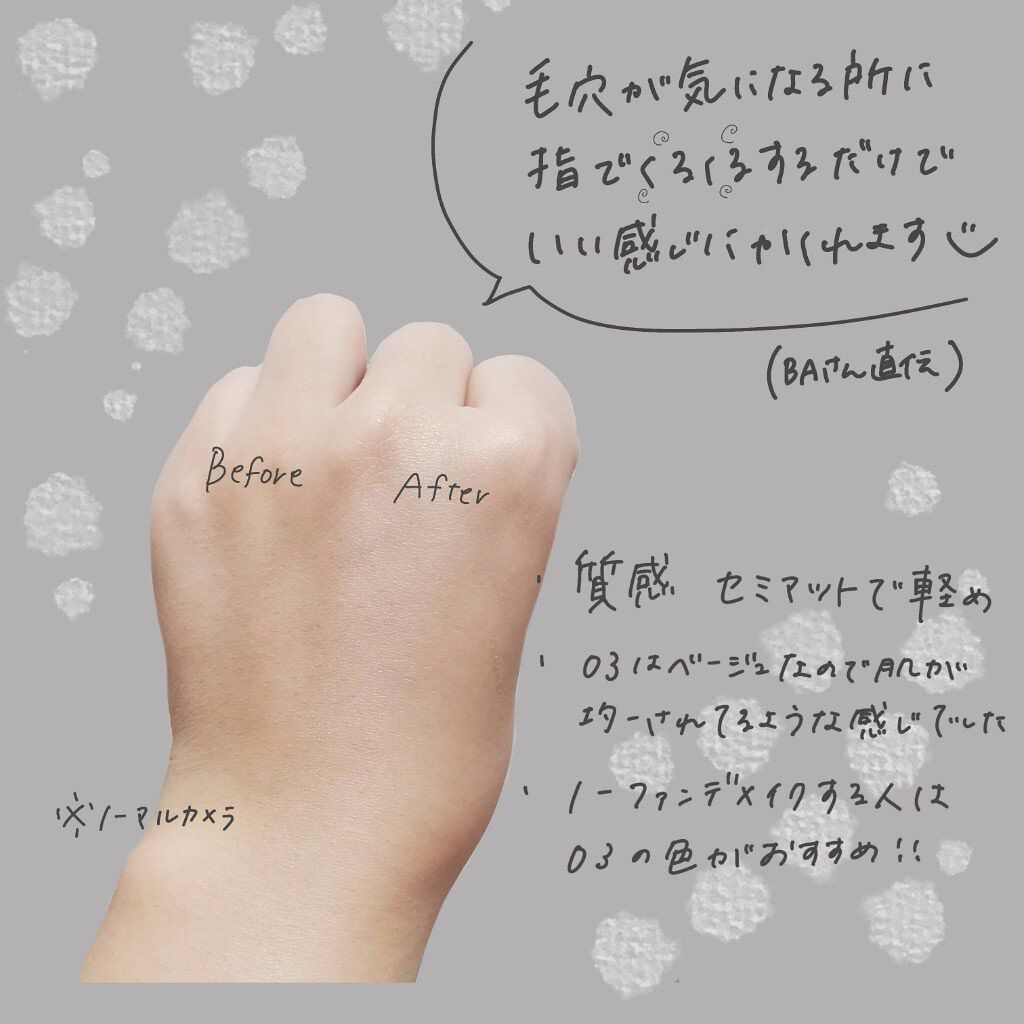 毛穴が気になる所に
指でくるくるするだけで
いい感じにかくれます
(BAさん直伝)
Before
After
・質感 セミマットで軽め
・03はベージュなので肌が
均一されてるような感じでした
・ノーファンデメイクする人は
03の色がおすすめ!!
※ノーマルカメラ